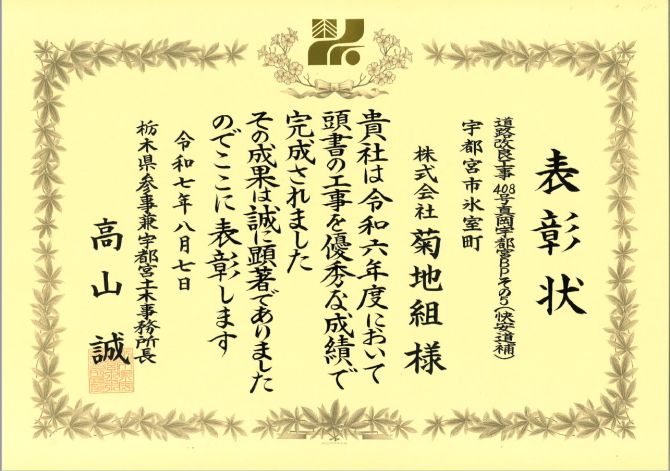 表彰状
道路改良工事 408号真岡宇都宮BPその5(快安道補)
宇都宮市氷室町
株式会社 菊地組 様
貴社は令和六年度において
頭書の工事を優秀な成績で
完成されました
その成果は誠に顕著でありました
のでここに表彰します
令和七年八月七日
栃木県参事兼宇都宮土木事務所長
高山 誠